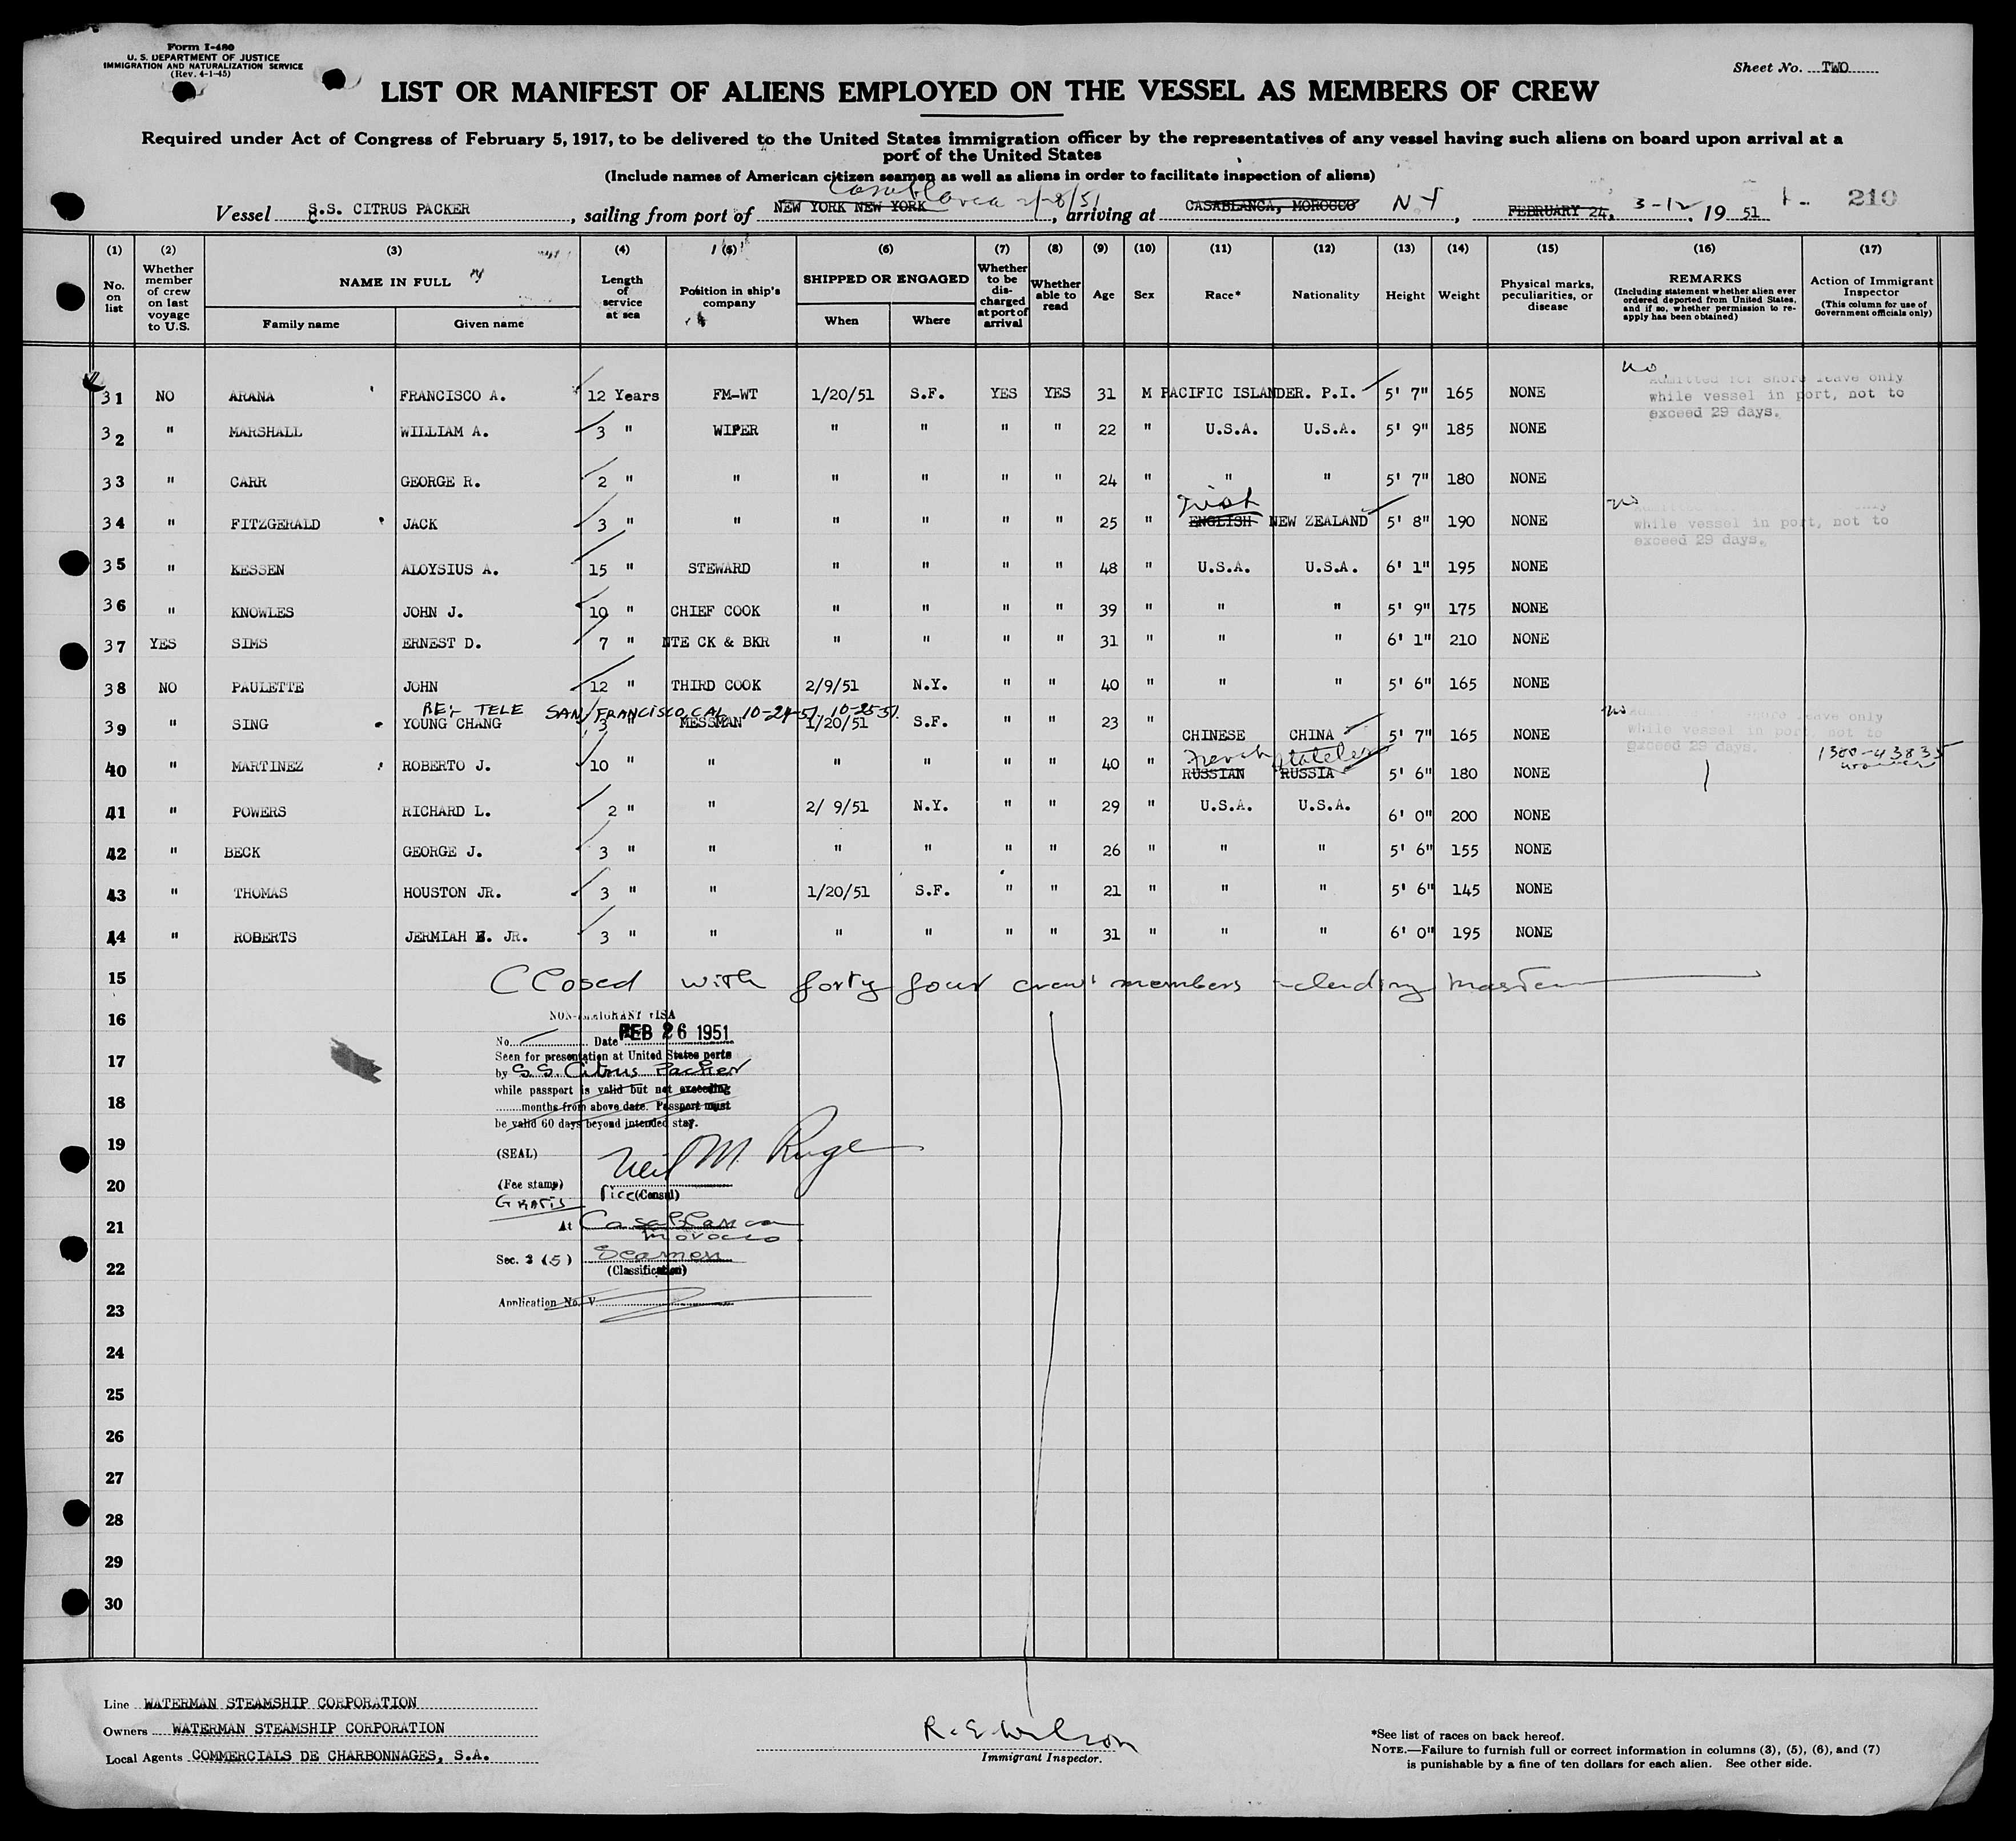 Form I-480
U. S. DEPARTMENT OF JUSTICE
IMMIGRATION AND NATURALIZATION SERVICE
(Rev. 4-1-45)
Sheet No. TWO
LIST OR MANIFEST OF ALIENS EMPLOYED ON THE VESSEL AS MEMBERS OF CREW
Required under Act of Congress of February 5, 1917, to be delivered to the United States immigration officer by the representatives of any vessel having such aliens on board upon arrival at a
port of the United States
(Include names of American citizen seamen as well as aliens in order to facilitate inspection of aliens)
Casablanca 2/28/51
Vessel S.S. CITRUS PACKER, sailing from port of NEW YORK NEW YORK, arriving at CASABLANCA, MOROCCO N Y, FEBRUARY 24, 3-12, 19 51 210
(1) (2) (3) (4) (5) (6) (7) (8) (9) (10) (11) (12) (13) (14) (15) (16) (17)
No. on list
Whether member of crew on last voyage to U.S.
NAME IN FULL
Family name
Given name
Length of service at sea
Position in ship's company
SHIPPED OR ENGAGED
When
Where
Whether to be discharged at port of arrival
Whether able to read
Age
Sex
Race*
Nationality
Height
Weight
Physical marks, peculiarities, or disease
REMARKS
(Including statement whether alien ever ordered deported from United States, and if so, whether permission to re-apply has been obtained)
Action of Immigrant Inspector
(This column for use of Government officials only)
31 NO ARANA FRANCISCO A. 12 Years FM-WT 1/20/51 S.F. YES YES 31 M PACIFIC ISLANDER. P.I. 5' 7" 165 NONE no Admitted for shore leave only while vessel in port, not to exceed 29 days.
32 " MARSHALL WILLIAM A. 3 " WIPER " " " " 22 " U.S.A. U.S.A. 5' 9" 185 NONE
33 " CARR GEORGE R. 2 " " " " " " 24 " " " 5' 7" 180 NONE
34 " FITZGERALD JACK 3 " " " " " " 25 " ENGLISH Irish NEW ZEALAND 5' 8" 190 NONE no while vessel in port, not to exceed 29 days.
35 " KESSEN ALOYSIUS A. 15 " STEWARD " " " " 48 " U.S.A. U.S.A. 6' 1" 195 NONE
36 " KNOWLES JOHN J. 10 " CHIEF COOK " " " " 39 " " " 5' 9" 175 NONE
37 YES SIMS ERNEST D. 7 " NTE CK & BKR " " " " 31 " " " 6' 1" 210 NONE
38 NO PAULETTE JOHN 12 " THIRD COOK 2/9/51 N.Y. " " 40 " " " 5' 6" 165 NONE
RE:- TELE SAN FRANCISCO, CAL 10-24-51, 10-25-51.
39 " SING YOUNG CHANG 3 " MESSMAN 1/20/51 S.F. " " 23 " CHINESE CHINA 5' 7" 165 NONE no shore leave only while vessel in port, not to exceed 29 days.
40 " MARTINEZ ROBERTO J. 10 " " " " " " 40 " RUSSIAN French RUSSIA Stateless 5' 6" 180 NONE 1300-43835
41 " POWERS RICHARD L. 2 " " 2/ 9/51 N.Y. " " 29 " U.S.A. U.S.A. 6' 0" 200 NONE
42 " BECK GEORGE J. 3 " " " " " " 26 " " " 5' 6" 155 NONE
43 " THOMAS HOUSTON JR. 3 " " 1/20/51 S.F. " " 21 " " " 5' 6" 145 NONE
44 " ROBERTS JERMIAH E. JR. 3 " " " " " " 31 " " " 6' 0" 195 NONE
15 Closed with forty four crew members including Master
16
17
18
19
20
21
22
23
24
25
26
27
28
29
30
NON-IMMIGRANT VISA
No. Date FEB 26 1951
Seen for presentation at United States ports
by S.S. Citrus Packer
while passport is valid but not exceeding
months from above date. Passport must
be valid 60 days beyond intended stay.
(SEAL) Neil M. Ruge
(Fee stamp) Vice (Consul)
Gratis
At Casablanca
Morocco
Sec. 3 (5) Seamen
(Classification)
Application No. V
Line WATERMAN STEAMSHIP CORPORATION
Owners WATERMAN STEAMSHIP CORPORATION
Local Agents COMMERCIALS DE CHARBONNAGES, S.A.
R. E. Wilson
Immigrant Inspector.
*See list of races on back hereof.
NOTE.—Failure to furnish full or correct information in columns (3), (5), (6), and (7)
is punishable by a fine of ten dollars for each alien. See other side.